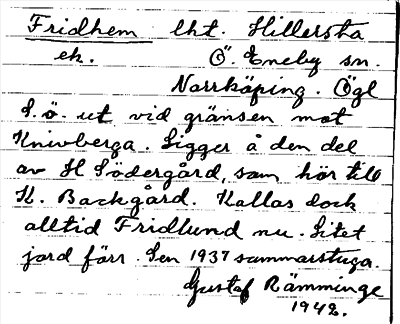 Fridhem lht. Hillersta
ek. Ö. Eneby sn.
Norrköping. Ögl
S.ö. ut vid gränsen mot
Knivberga. Ligger å den del
av H Södergård, som hör till
K. Backgård. Kallas dock
alltid Fridlund nu. Litet
jord förr. Sen 1937 sommarstuga.
Gustaf Rämminge
1942.